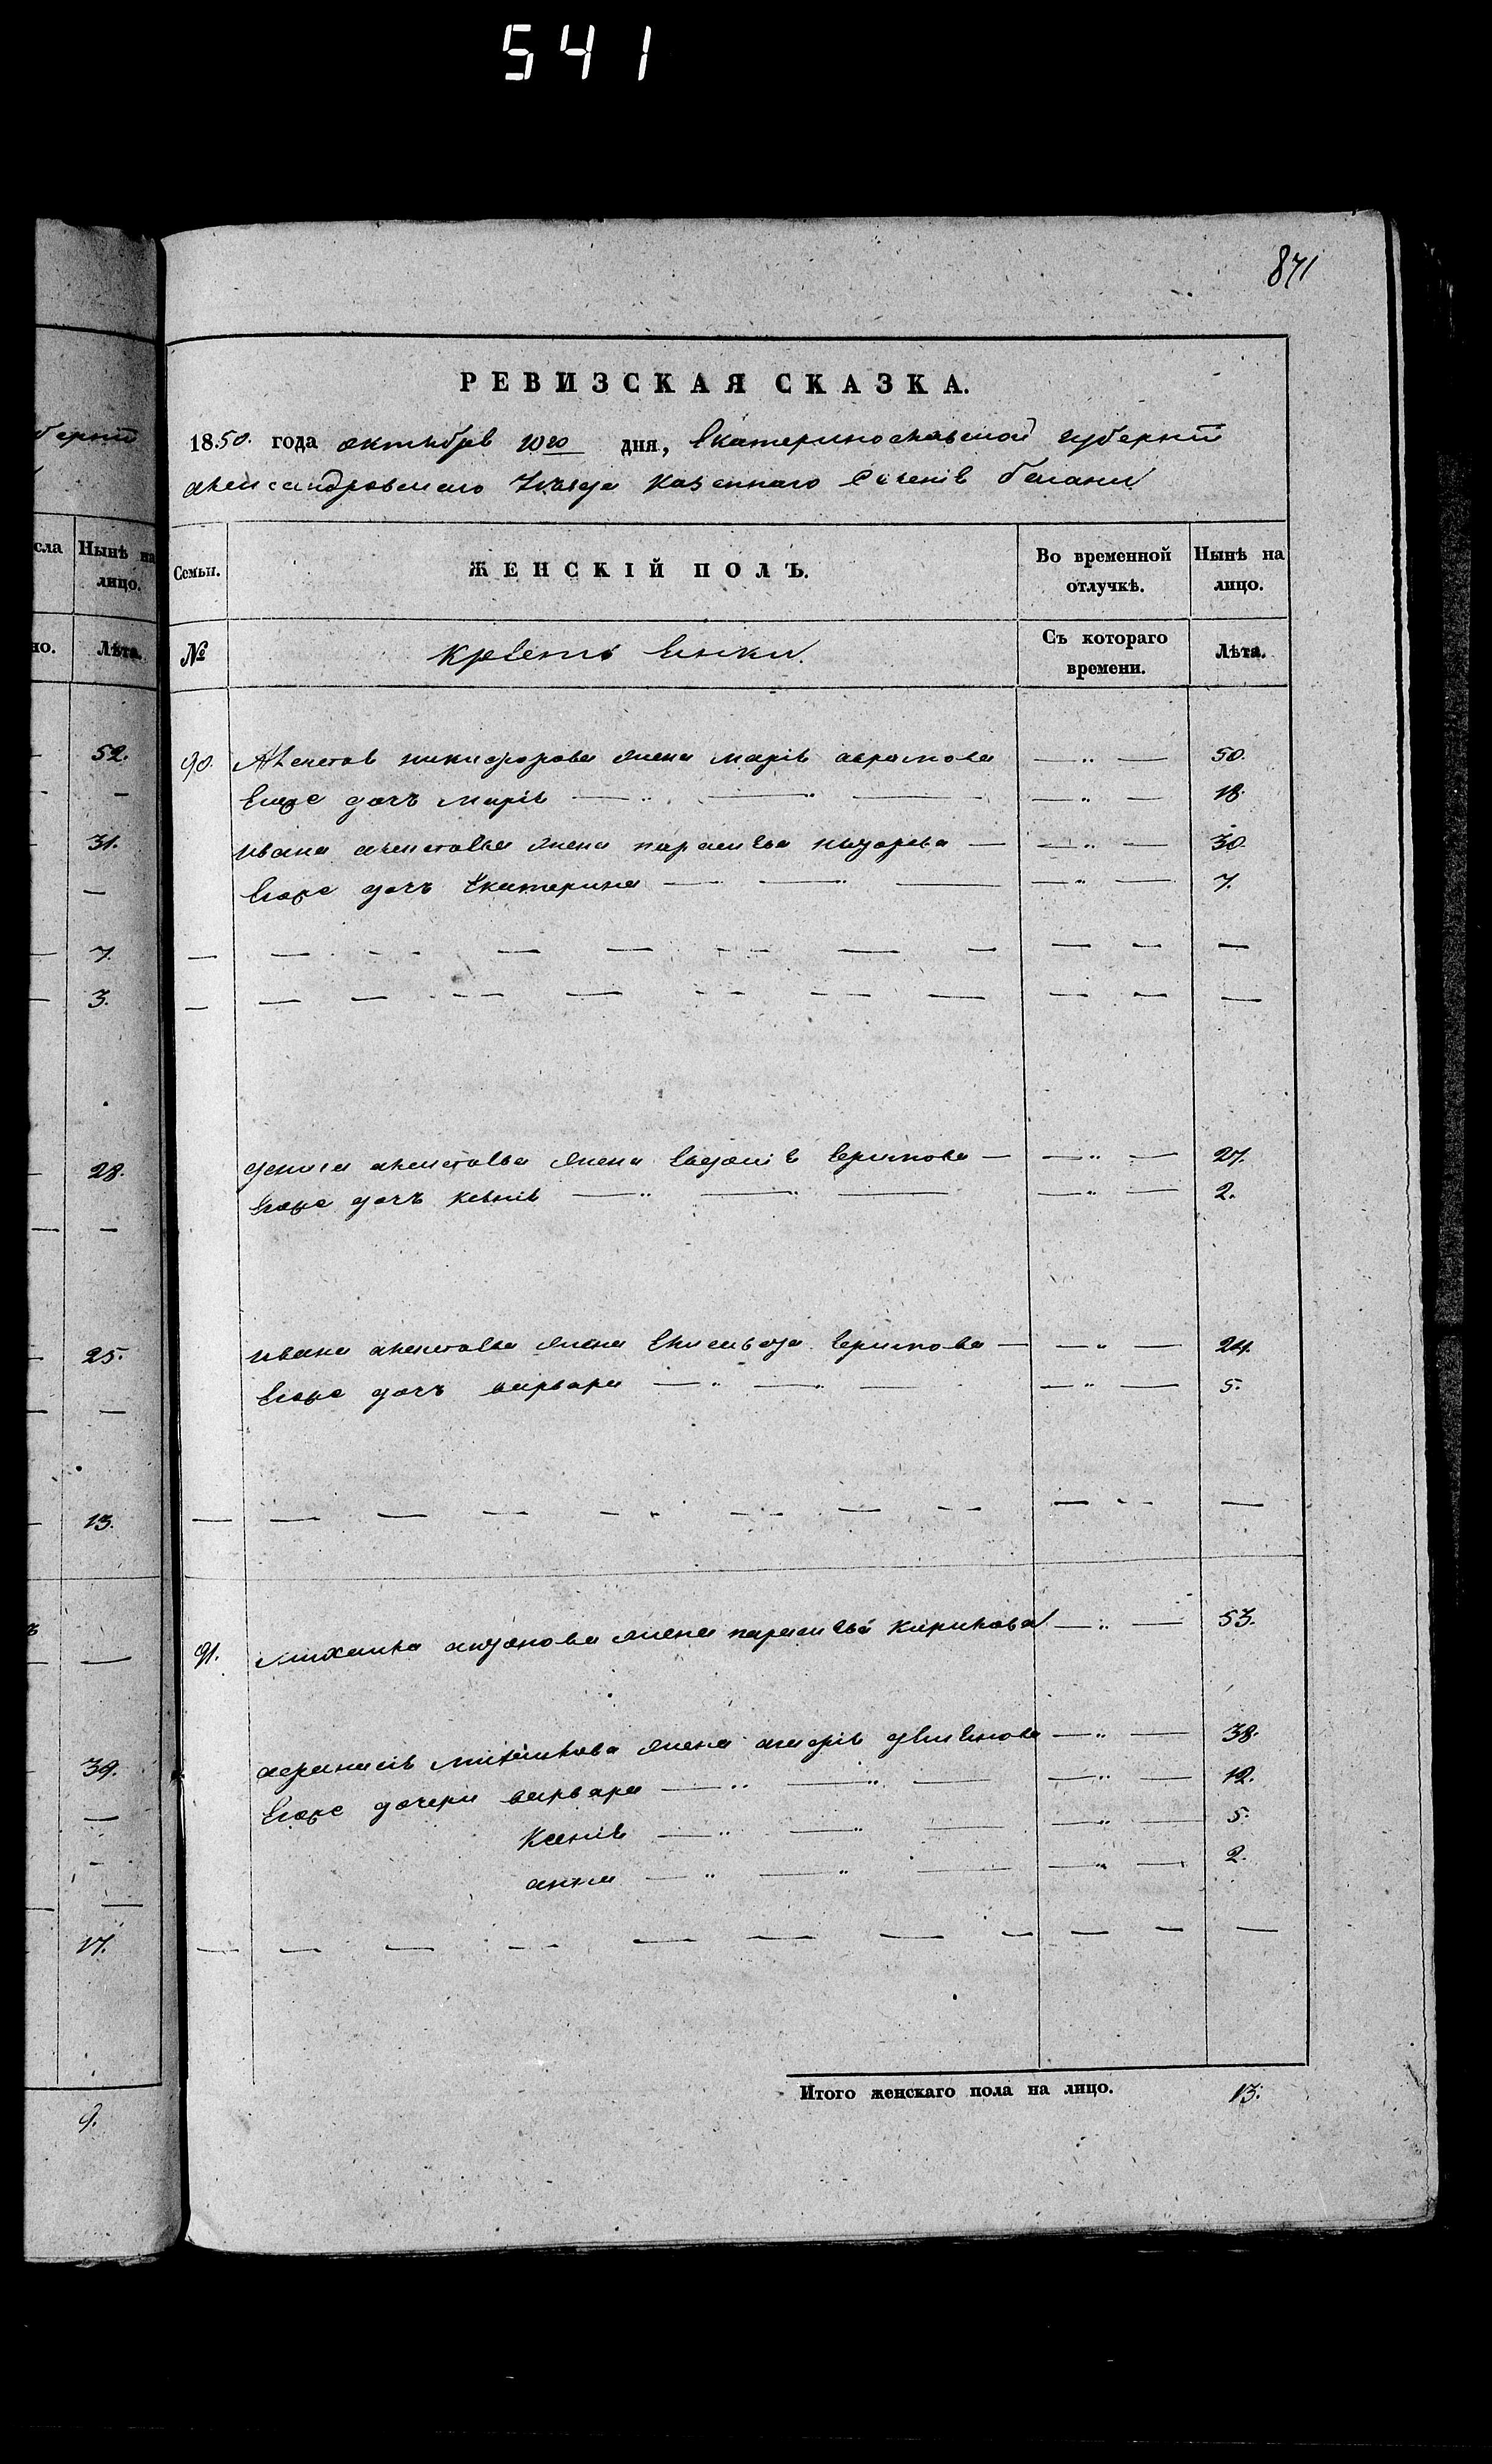 541
871
РЕВИЗСКАЯ СКАЗКА.
1850. года октября 10го дня, Екатеринославской губернiи
александровскаго уезда казеннаго селенiя белаки
Семьи.
ЖЕНСКIЙ ПОЛЪ.
Во временной отлучкѣ.
Нынѣ на лицо.
№
крестьянки.
Съ котораго времени.
Лѣта.
90. никифорова жена марiя абрамова — „ — 50.
Егоже дочь марiя — „ — „ — — „ — 18.
ивана жена параскева — — „ — 30.
Егоже дочь Екатерина — — „ — — „ — 7.
дениса жена Евдокiя — — „ — 27.
Егоже дочь ксенiя — „ — „ — — „ — 2.
ивана жена Елисавета — — „ — 24.
Егоже дочь варвара — „ — „ — — „ — 5.
91. михаила жена параскева кирилова — „ — 53.
афанасiя михайлова жена марiя — „ — 38.
Егоже дочери варвара — „ — „ — — „ — 12.
Ксенiя — „ — „ — — „ — 5.
анна — „ — „ — — „ — 2.
Итого женскаго пола на лицо. 13.
бернiи
сла
Нынѣ на лицо.
но.
Лѣта.
52.
31.
7.
3.
28.
25.
13.
39.
17.
9.